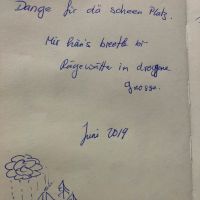 Dange für dä scheen Platz.
Mir hän's breetle bi
Rägewätter in droggene
gnosse.
Juni 2019